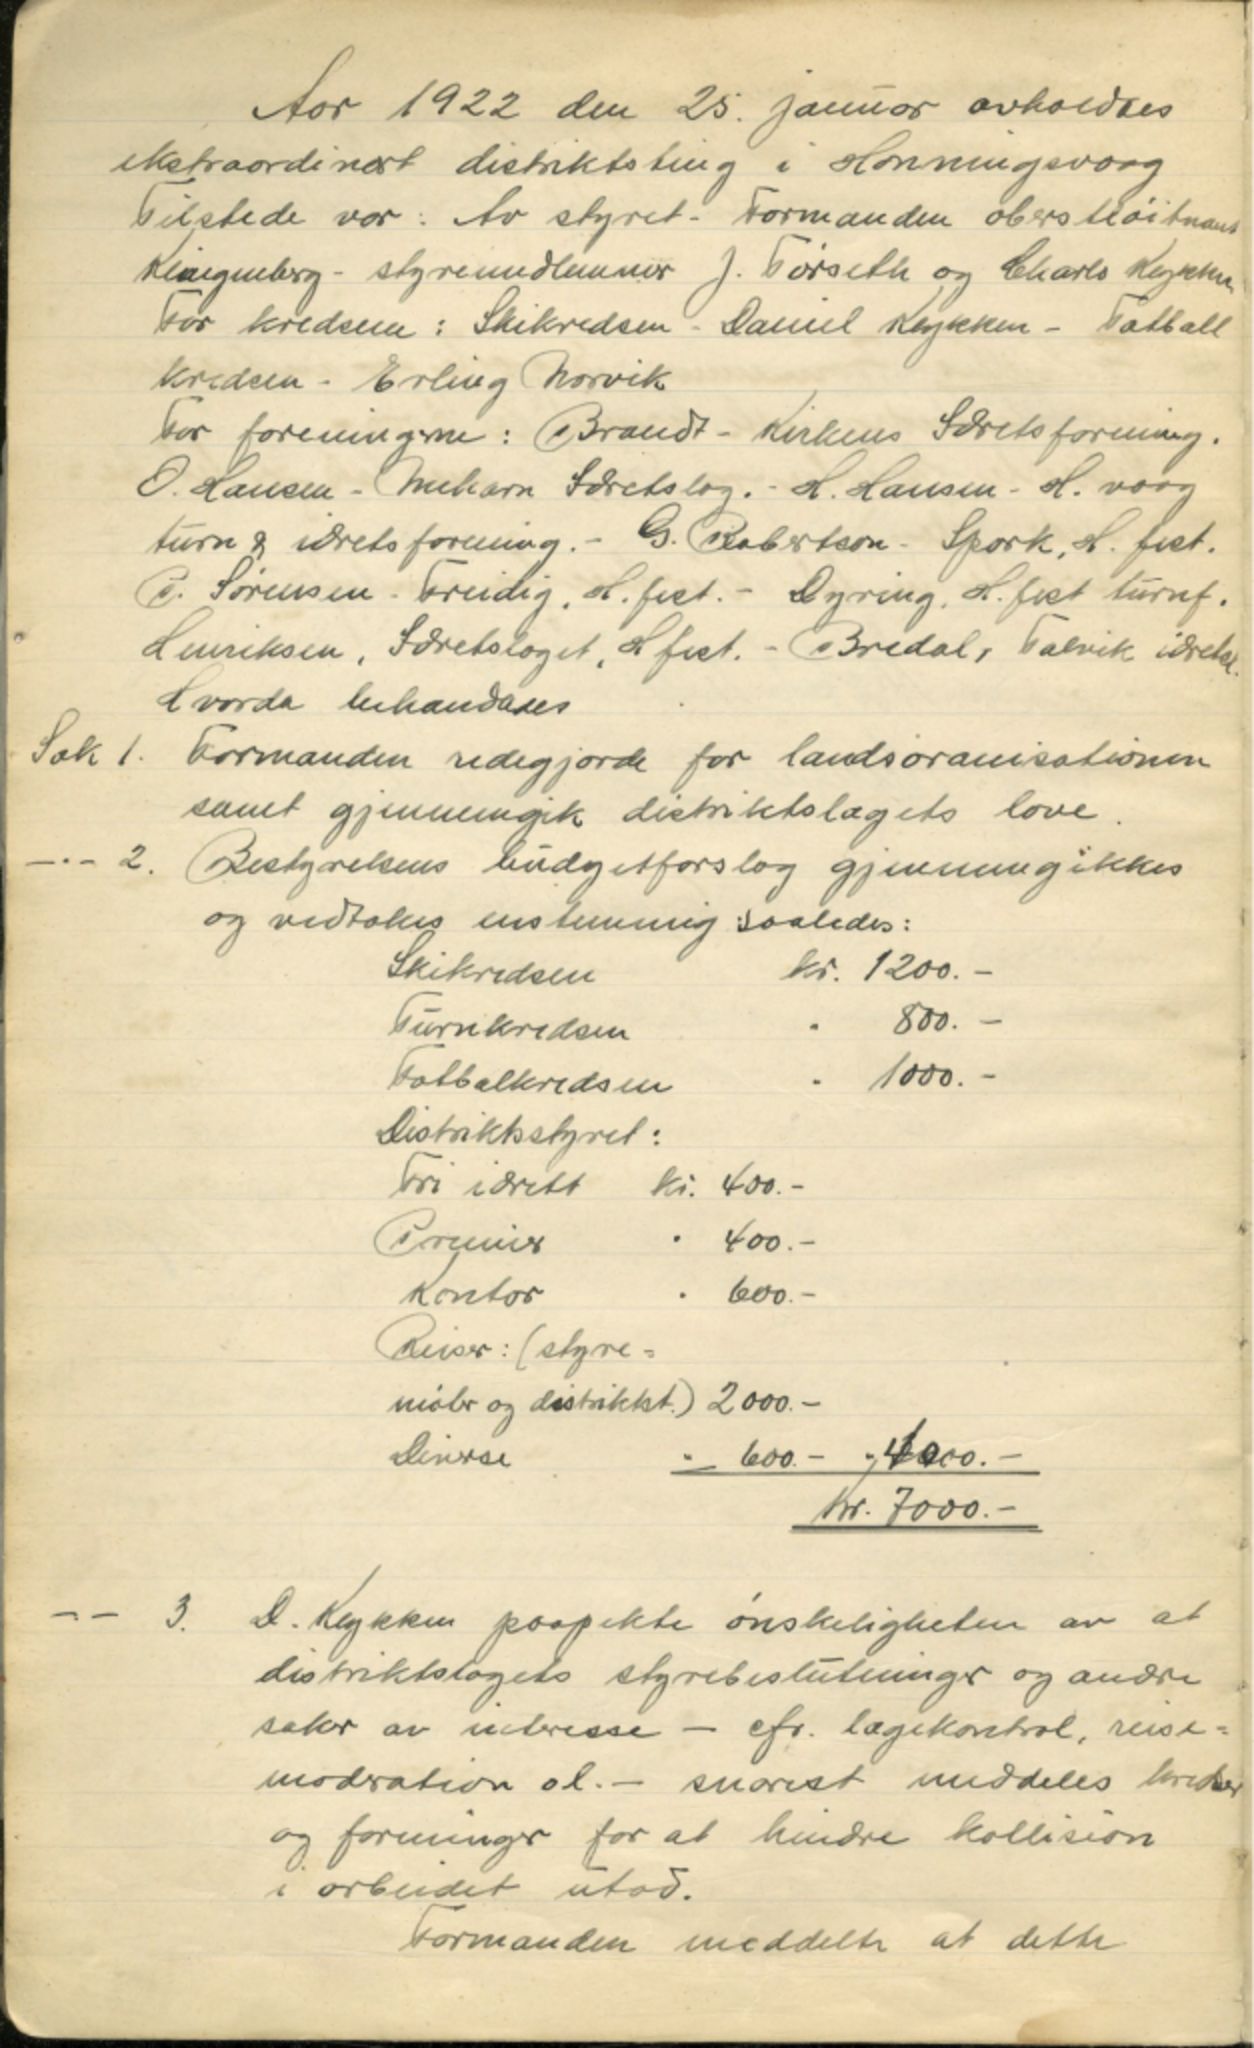 Aar 1922 den 25. januar avholdtes
ekstraordinært distriktsting i Honningsvaag
Tilstede var: Av styret - Formanden oberstløitnant
Klingenberg - styremedlemmer J. Førseth og Charls Keykken
For kredsene: Skikredsen - Daniel Keykken - Fotball
kredsen - Erling Norvik
For foreningerne: Brandt - Kirkenes Idrætsforening.
O. Hansen - Mehavn Idrætslag. - H. Hansen - H. vaag
turn & idrætsforening. - G. Robertson - Spark, H. fest.
P. Sørensen - Freidig, H. fest. - Dyring, H. fest turnf.
Henriksen, Idrætslaget, H fest. - Bredal, Talvik idrætsl.
Hvorda behandles
Sak 1. Formanden redegjorde for landsoranisationen
samt gjennemgik distriktslagets love.
-"- 2. Bestyrelsens budgetforslag gjennemgikkes
og vedtokes enstemmig saaledes:
Skikredsen kr. 1200.-
Turnkredsen " 800.-
Fotbalkredsen " 1000.-
Distriktsstyret:
Fri idrett kr. 400.-
Premier " 400.-
Kontor " 600.-
Reiser: (styre=
møter og distriktst.) 2000.-
Diverse " 600.- " 4000.-
Kr. 7000.-
-"- 3. D. Keykken paapekte ønskeligheten av at
distriktslagets styrebeslutninger og andre
saker av interesse - cfr. lægekontrol, reise=
moderation ol. - snarest meddeles kredser
og foreninger for at hindre kollision
i arbeidet utad.
Formanden meddelte at dette